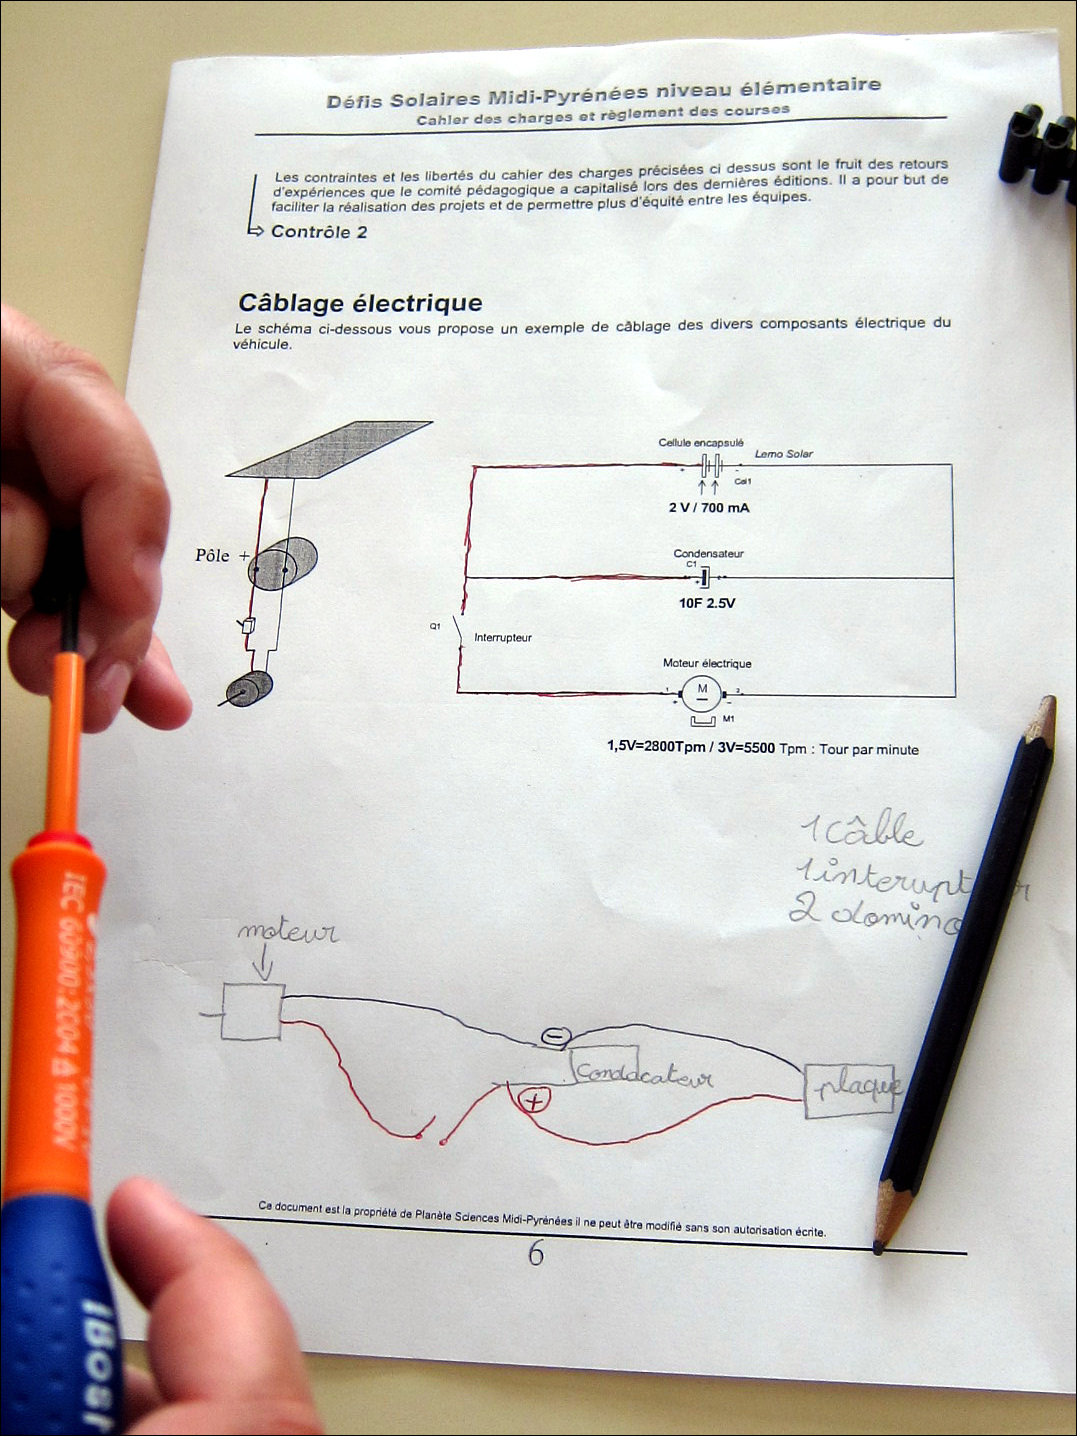 Défis Solaires Midi-Pyrénées niveau élémentaire
Cahier des charges et règlement des courses
Les contraintes et les libertés du cahier des charges précisées ci dessus sont le fruit des retours
d'expériences que le comité pédagogique a capitalisé lors des dernières éditions. Il a pour but de
faciliter la réalisation des projets et de permettre plus d'équité entre les équipes.
Contrôle 2
Câblage électrique
Le schéma ci-dessous vous propose un exemple de câblage des divers composants électrique du
véhicule.
Cellule encapsulé
Lemo Solar
+ -
Cel1
2 V / 700 mA
Pôle +
Condensateur
C1
+ -
10F 2.5V
Q1
Interrupteur
Moteur électrique
1 M 2
+ -
M1
1,5V=2800Tpm / 3V=5500 Tpm : Tour par minute
1 câble
1 interupt r
2 domino
moteur
-
condacateur
plaque
+
Ce document est la propriété de Planète Sciences Midi-Pyrénées il ne peut être modifié sans son autorisation écrite.
6
IEC 60900:2004 1000V